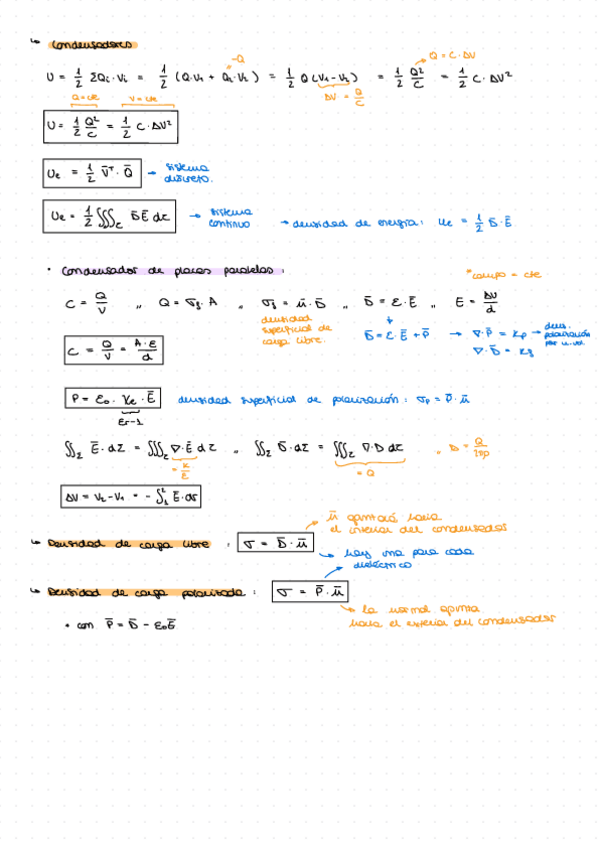 ↳ Condensadores
-Q
Q = C · ΔV
U = 1/2 ΣQi · Vi = 1/2 (Q·V1 + Q2·V2) = 1/2 Q (V1 - V2) = 1/2 Q²/C = 1/2 C · ΔV²
Q=cte V=cte ΔV = Q/C
U = 1/2 Q²/C = 1/2 C · ΔV²
Ue = 1/2 V̄ᵀ · Q̄ → sistema
discreto.
Ue = 1/2 ∭τ D̄ Ē dτ → sistema
continuo → densidad de energía: ue = 1/2 D̄ · Ē
• Condensador de placas paralelas: *campo = cte
C = Q/V ,, Q = σf · A ,, σf = n̄ · D̄ ,, D̄ = ε · Ē ,, E = ΔV/d
densidad
superficial de
carga libre.
D̄ = ε · Ē + P̄ → ∇ · P̄ = → dens.
polarización
por u. vol.
∇ · D̄ =
C = Q/V = A · ε/d
P = ε0 · χe · Ē densidad superficial de polarización: σp = P̄ · n̄
εr-1
∬Σ Ē · dΣ = ∭τ ∇ · Ē dτ ,, ∬Σ D̄ · dΣ = ∭τ ∇ · D dτ ,, D =
= Q
ΔV = V2 - V1 = - ∫₁² Ē · dr
n̄ apuntará hacia
el interior del condensador
↳ Densidad de carga libre : σ = D̄ · n̄
hay una para cada
dieléctrico
↳ Densidad de carga polarizada : σ = P̄ · n̄
la normal apunta
hacia el exterior del condensador
• con P̄ = D̄ - ε0Ē.